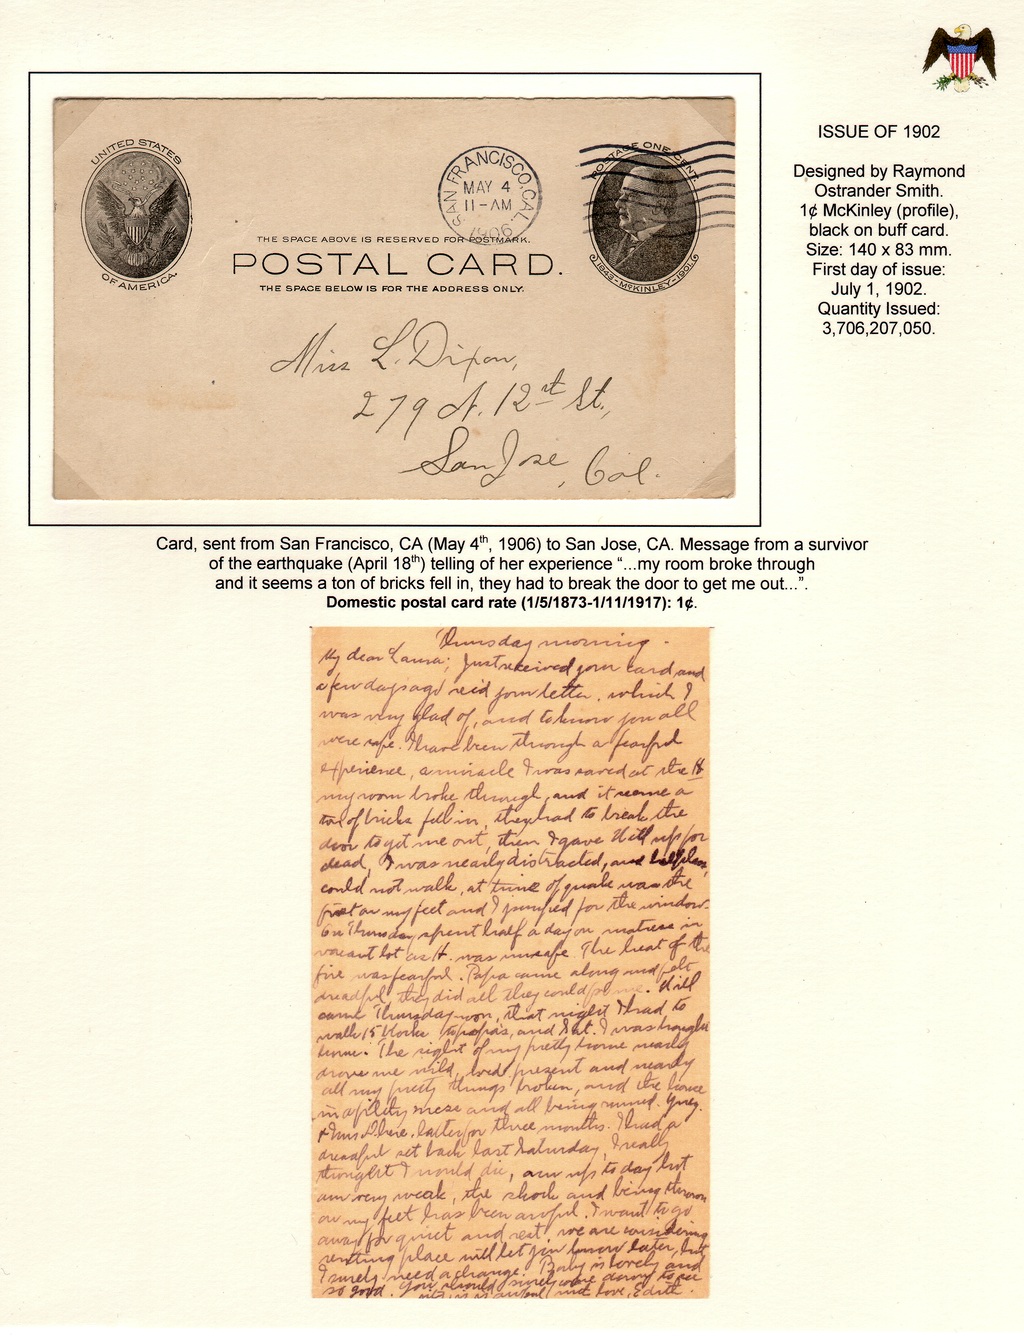 UNITED STATES
OF AMERICA.
SAN FRANCISCO, CAL.
MAY 4
11-AM
1906
POSTAGE ONE CENT.
1843-McKINLEY-1901.
THE SPACE ABOVE IS RESERVED FOR POSTMARK.
POSTAL CARD.
THE SPACE BELOW IS FOR THE ADDRESS ONLY.
Miss L. Dixon,
279 N. 12st St.,
San Jose, Cal.
ISSUE OF 1902
Designed by Raymond
Ostrander Smith.
1¢ McKinley (profile),
black on buff card.
Size: 140 x 83 mm.
First day of issue:
July 1, 1902.
Quantity Issued:
3,706,207,050.
Card, sent from San Francisco, CA (May 4th, 1906) to San Jose, CA. Message from a survivor
of the earthquake (April 18th) telling of her experience “...my room broke through
and it seems a ton of bricks fell in, they had to break the door to get me out...”.
Domestic postal card rate (1/5/1873-1/11/1917): 1¢.
Thursday morning.
My dear Laura; Just received your card and
a few days ago rec'd your letter, which I
was very glad of, and to know you all
were safe. I have been through a fearful
experience, a miracle I was saved at the H
my room broke through, and it seems a
ton of bricks fell in, they had to break the
door to get me out, then I gave Will up for
dead, I was nearly distracted, and helpless,
could not walk, at time of quake was the
first on my feet and I jumped for the window.
On Thursday spent half a day on matress in
vacant lot as H. was unsafe. The heat of the
fire was fearful. Papa came along and felt
dreadful, they did all they could for me. Will
came Thursday noon, that night I had to
walk 15 blocks to papa's, and Sat. I was brought
home. The sight of my pretty home nearly
drove me wild, wed. present and nearly
all my pretty things broken, and the house
in a filthy mess and all being ruined.
here. latter for three months. I had a
dreadful set back last Saturday, I really
thought I would die, am up to day but
am very weak, the shock and being thrown
on my feet has been awful. I want to go
away for quiet and rest, we are considering
renting place will let you know later, but
I surely need a change. Baby is lovely and
so good. You should surely come down to see
love, Edith.